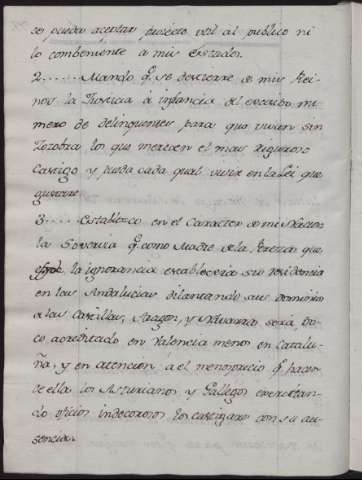 se pueda aceptar proiecto util al publico ni
lo combeniente a mis estados.
2..... Mando q.e se destierre de mis Rei-
nos la Justicia è infancia del excesibo nu-
mero de delinquentes para que vivan sin
zozobra los que merecen el mas riguroso
Castigo y pueda cada qual vivir en la Lei que
quisiere.
3.... Establezco en el Caracter de mi Nacion
la Sobervia q.e como Madre de la Pereza que
la ignorancia establecera su residencia
en las Andalucias dilantando sus dominios
a las Castillas, Aragon, y Navarra sera po-
co acreditado en Valencia menos en Catalu-
ña, y en atencion a el menosprecio q.e hacen
de ella los Asturianos y Gallegos exercitan-
do oficios indecorosos los castigara con su au-
sencia.